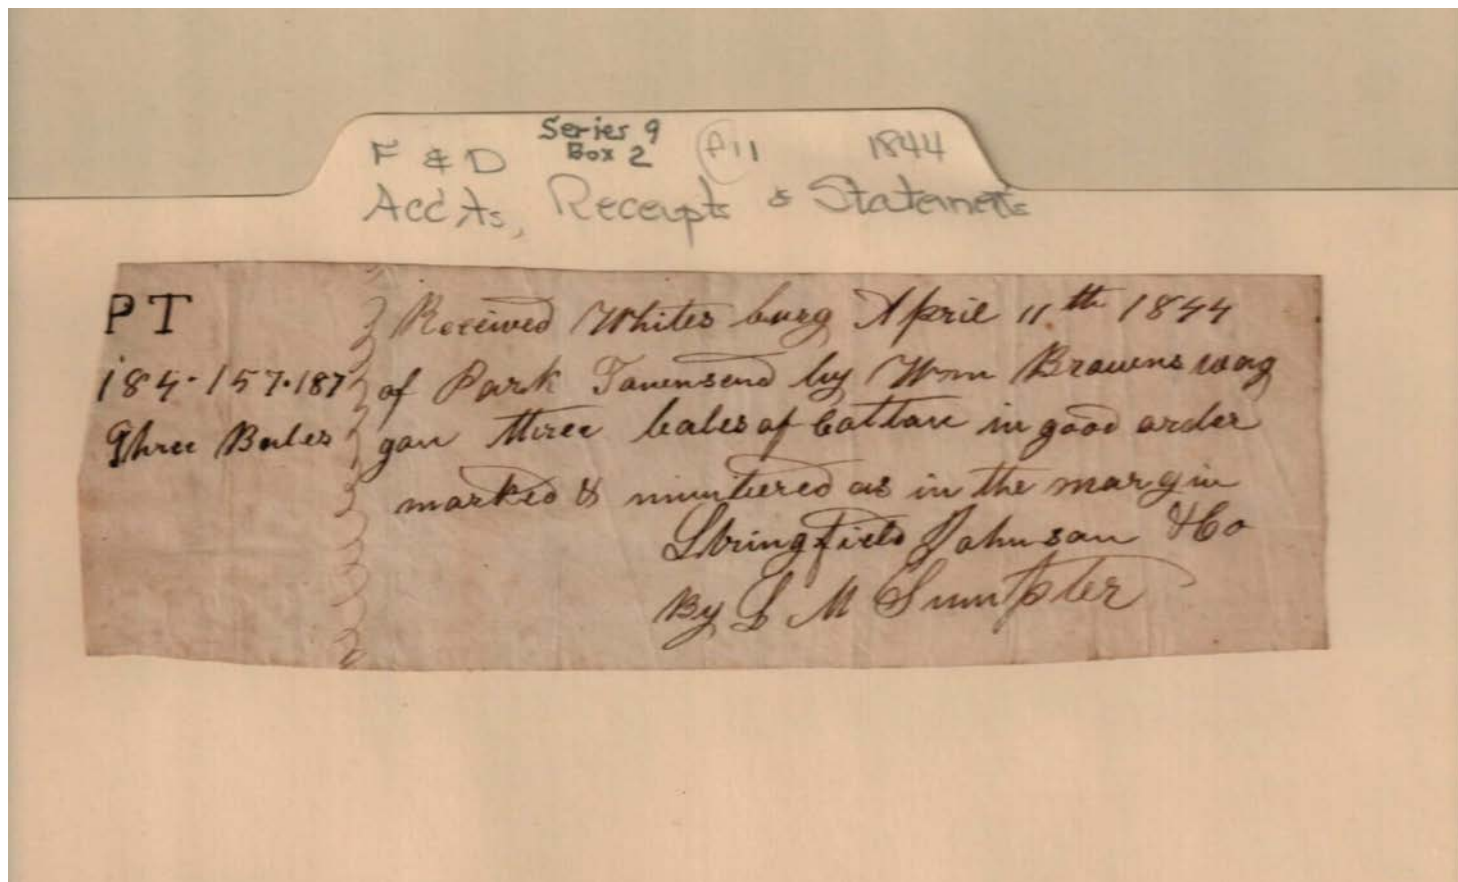 Series 9
F & D Box 2 A11 1844
Acc'ts, Receipts & Statements
PT
184-157-187
Three Bales
Received Whites burg April 11th 1844
of Park Townsend by Wm Browns wag
gon three bales of Cotton in good order
marked & numbered as in the margin
Stringfield Johnson & Co
By L M Sumpter